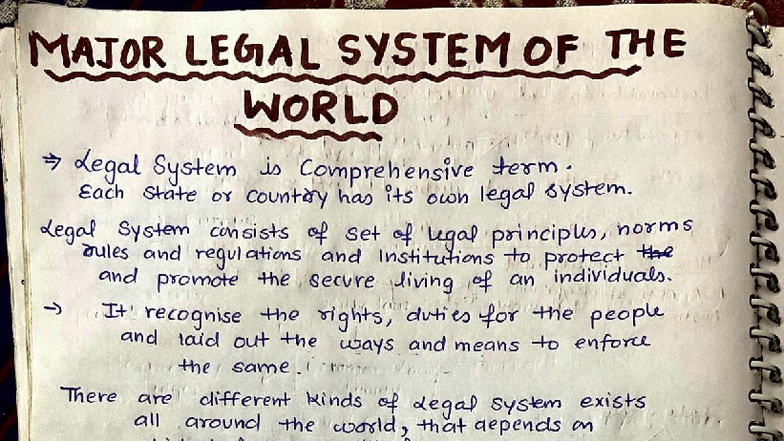 MAJOR LEGAL SYSTEM OF THE
WORLD
⇒ Legal System is Comprehensive term.
Each state or country has its own legal system.
Legal System consists of set of legal principles, norms
rules and regulations and Institutions to protect the
and promote the secure living of an individuals.
→ It recognise the rights, duties for the people
and laid out the ways and means to enforce
the same.
There are different kinds of Legal System exists
all around the world, that depends on